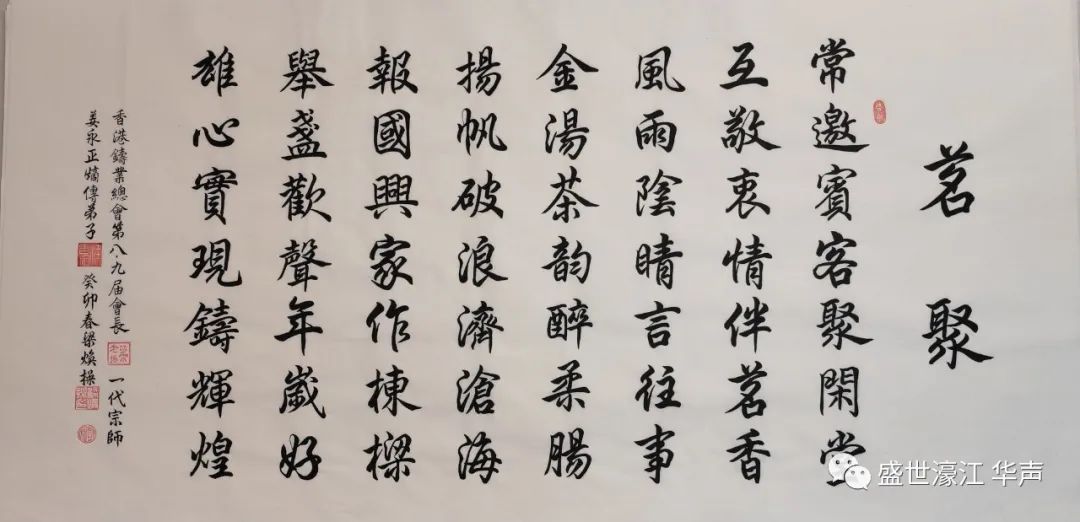 茗聚
常邀賓客聚閑堂
互敬衷情伴茗香
風雨陰晴言往事
金湯茶韵醉柔腸
揚帆破浪濟滄海
報國興家作棟樑
舉盞歡聲年歲好
雄心實現鑄輝煌
香港鑄業總會第八、九届會長 一代宗師
姜永正嫡傳弟子 癸卯春梁煥操
盛世濠江 华声